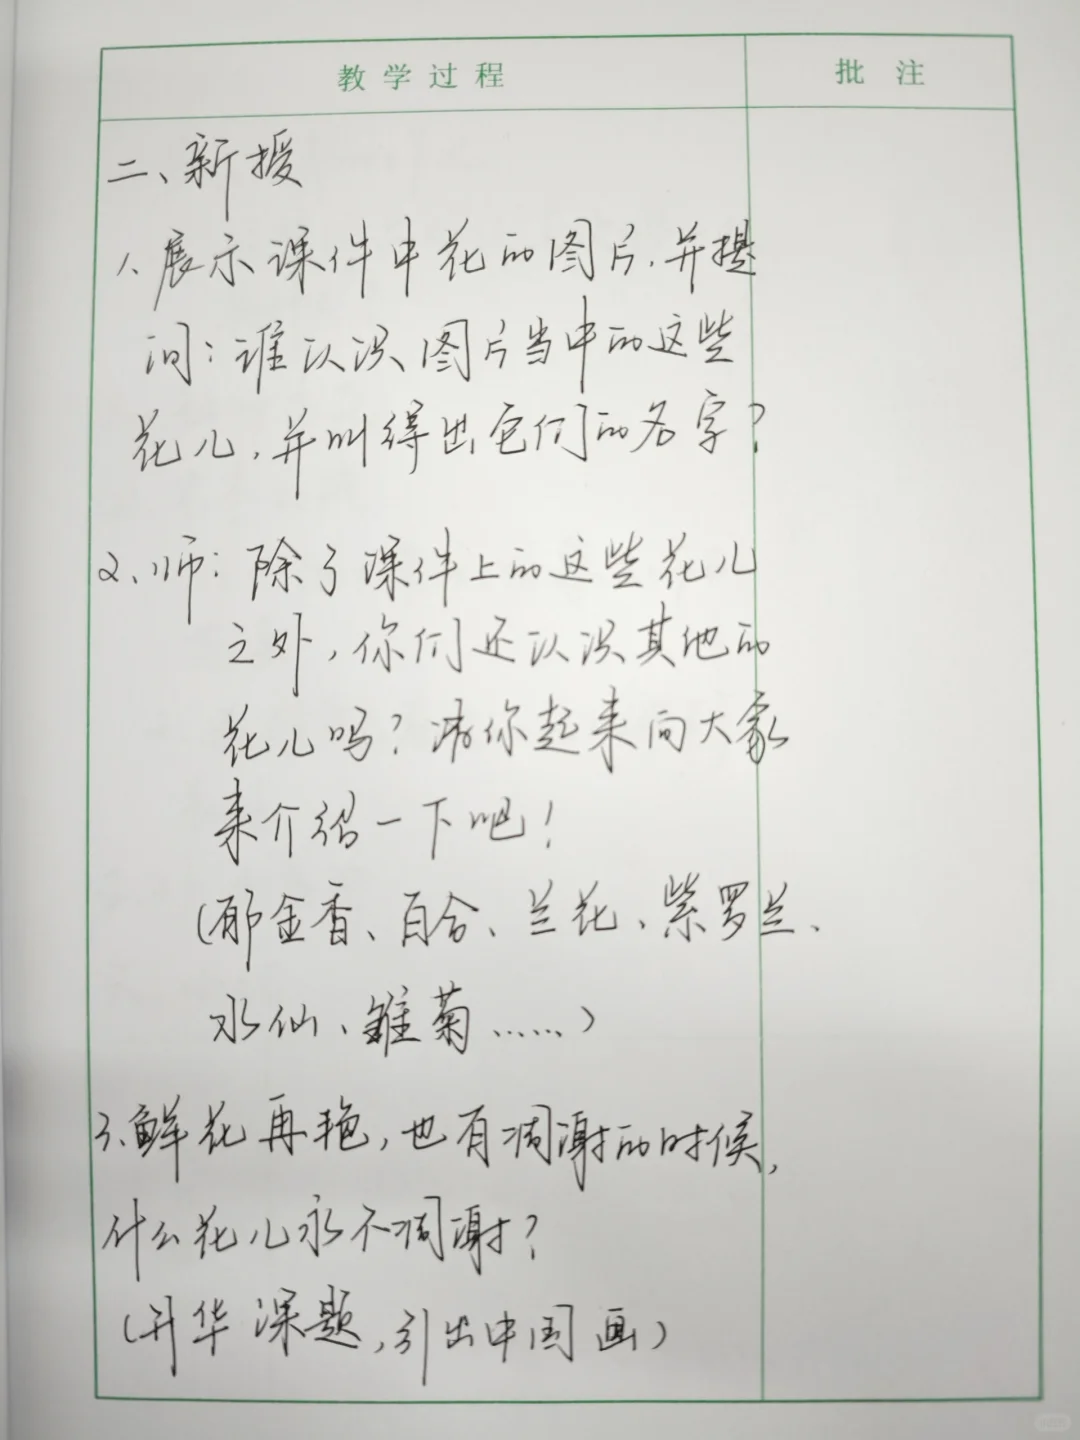 教学过程
批注
二、新授
1、展示课件中花的图片，并提
问：谁认识图片当中的这些
花儿，并叫得出它们的名字？
2、师：除了课件上的这些花儿
之外，你们还认识其他的
花儿吗？请你起来向大家
来介绍一下吧！
（郁金香、百合、兰花、紫罗兰、
水仙、雏菊……）
3、鲜花再艳，也有凋谢的时候，
什么花儿永不凋谢？
（升华课题，引出中国画）